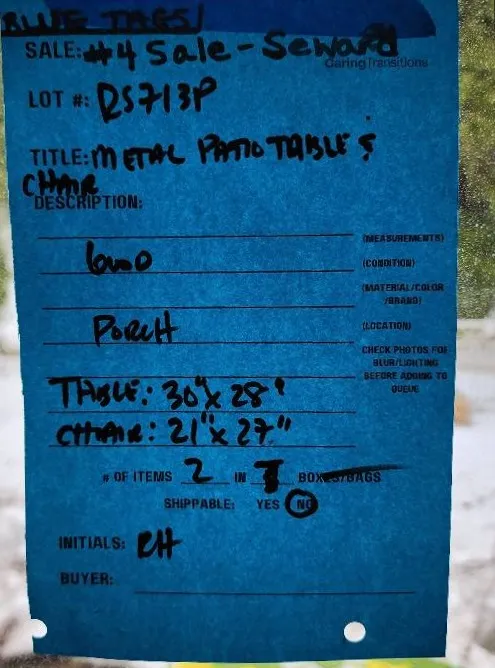 BLUE TAGS!
SALE: #4 Sale - Seward
CaringTransitions
LOT #: RS713P
TITLE: METAL PATIO TABLE &
CHAIR
DESCRIPTION:
(MEASUREMENTS)
GOOD (CONDITION)
(MATERIAL/COLOR
/BRAND)
PORCH (LOCATION)
CHECK PHOTOS FOR
BLUR/LIGHTING
BEFORE ADDING TO
QUEUE
TABLE: 30" x 28"
CHAIR: 21" x 27"
# OF ITEMS 2 IN BOXES/BAGS
SHIPPABLE: YES NO
INITIALS: RH
BUYER: